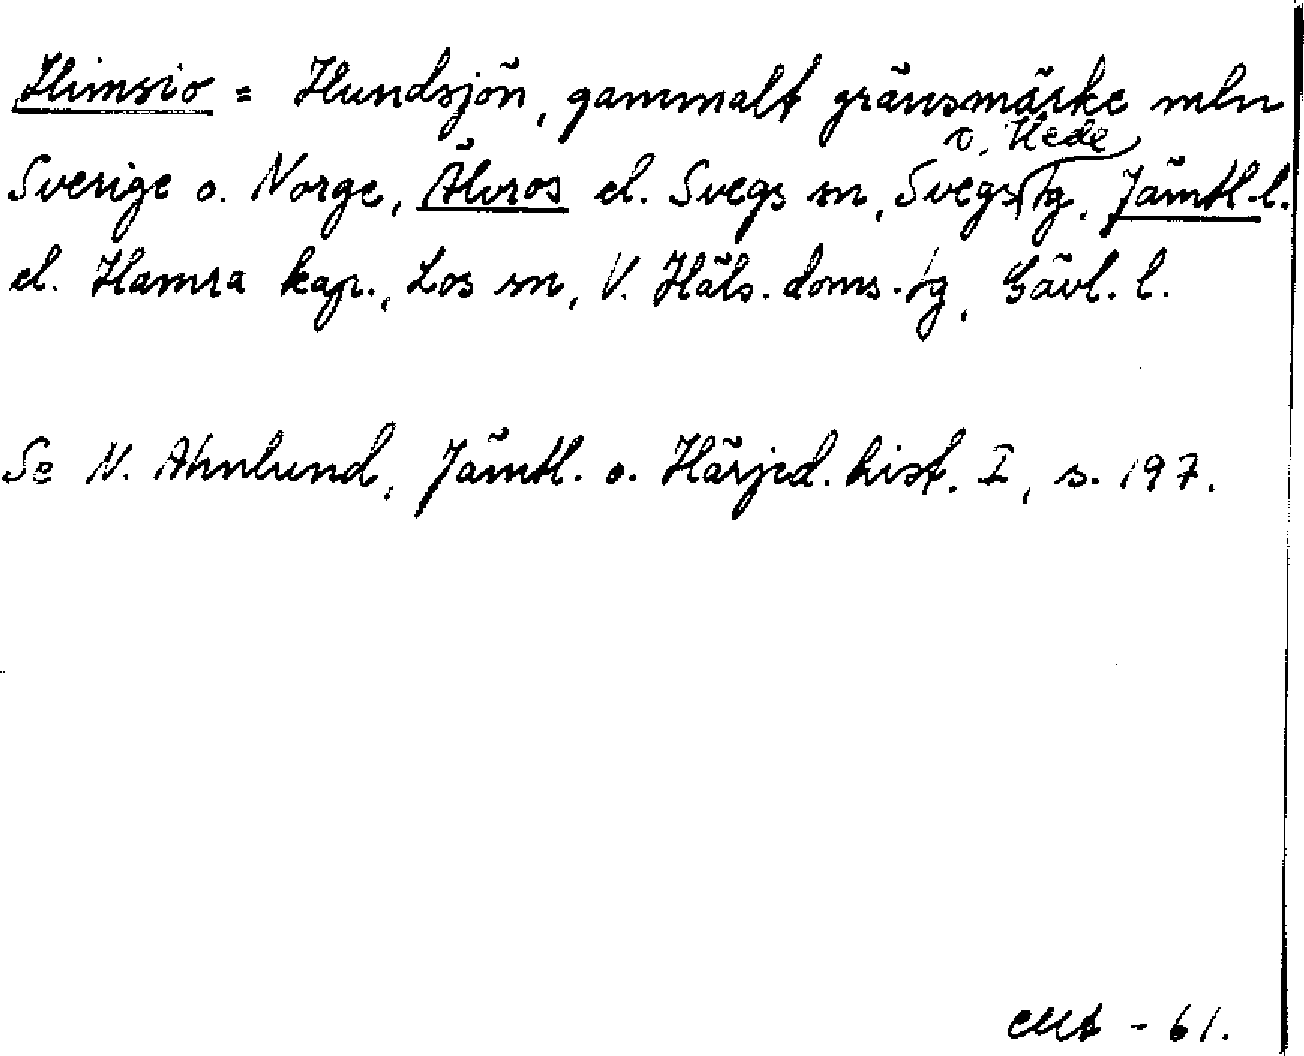 Himsio = Hundsjön, gammalt gränsmärke mln
o. Hede
Sverige o. Norge, Älvros el. Svegs sn, Svegs tg, Jämtl. l.
el. Hamra kap., Los sn, V. Häls. doms. tg, Gävl. l.
Se N. Ahnlund, Jämtl. o. Härjed. hist. I, s. 197.
- 61.